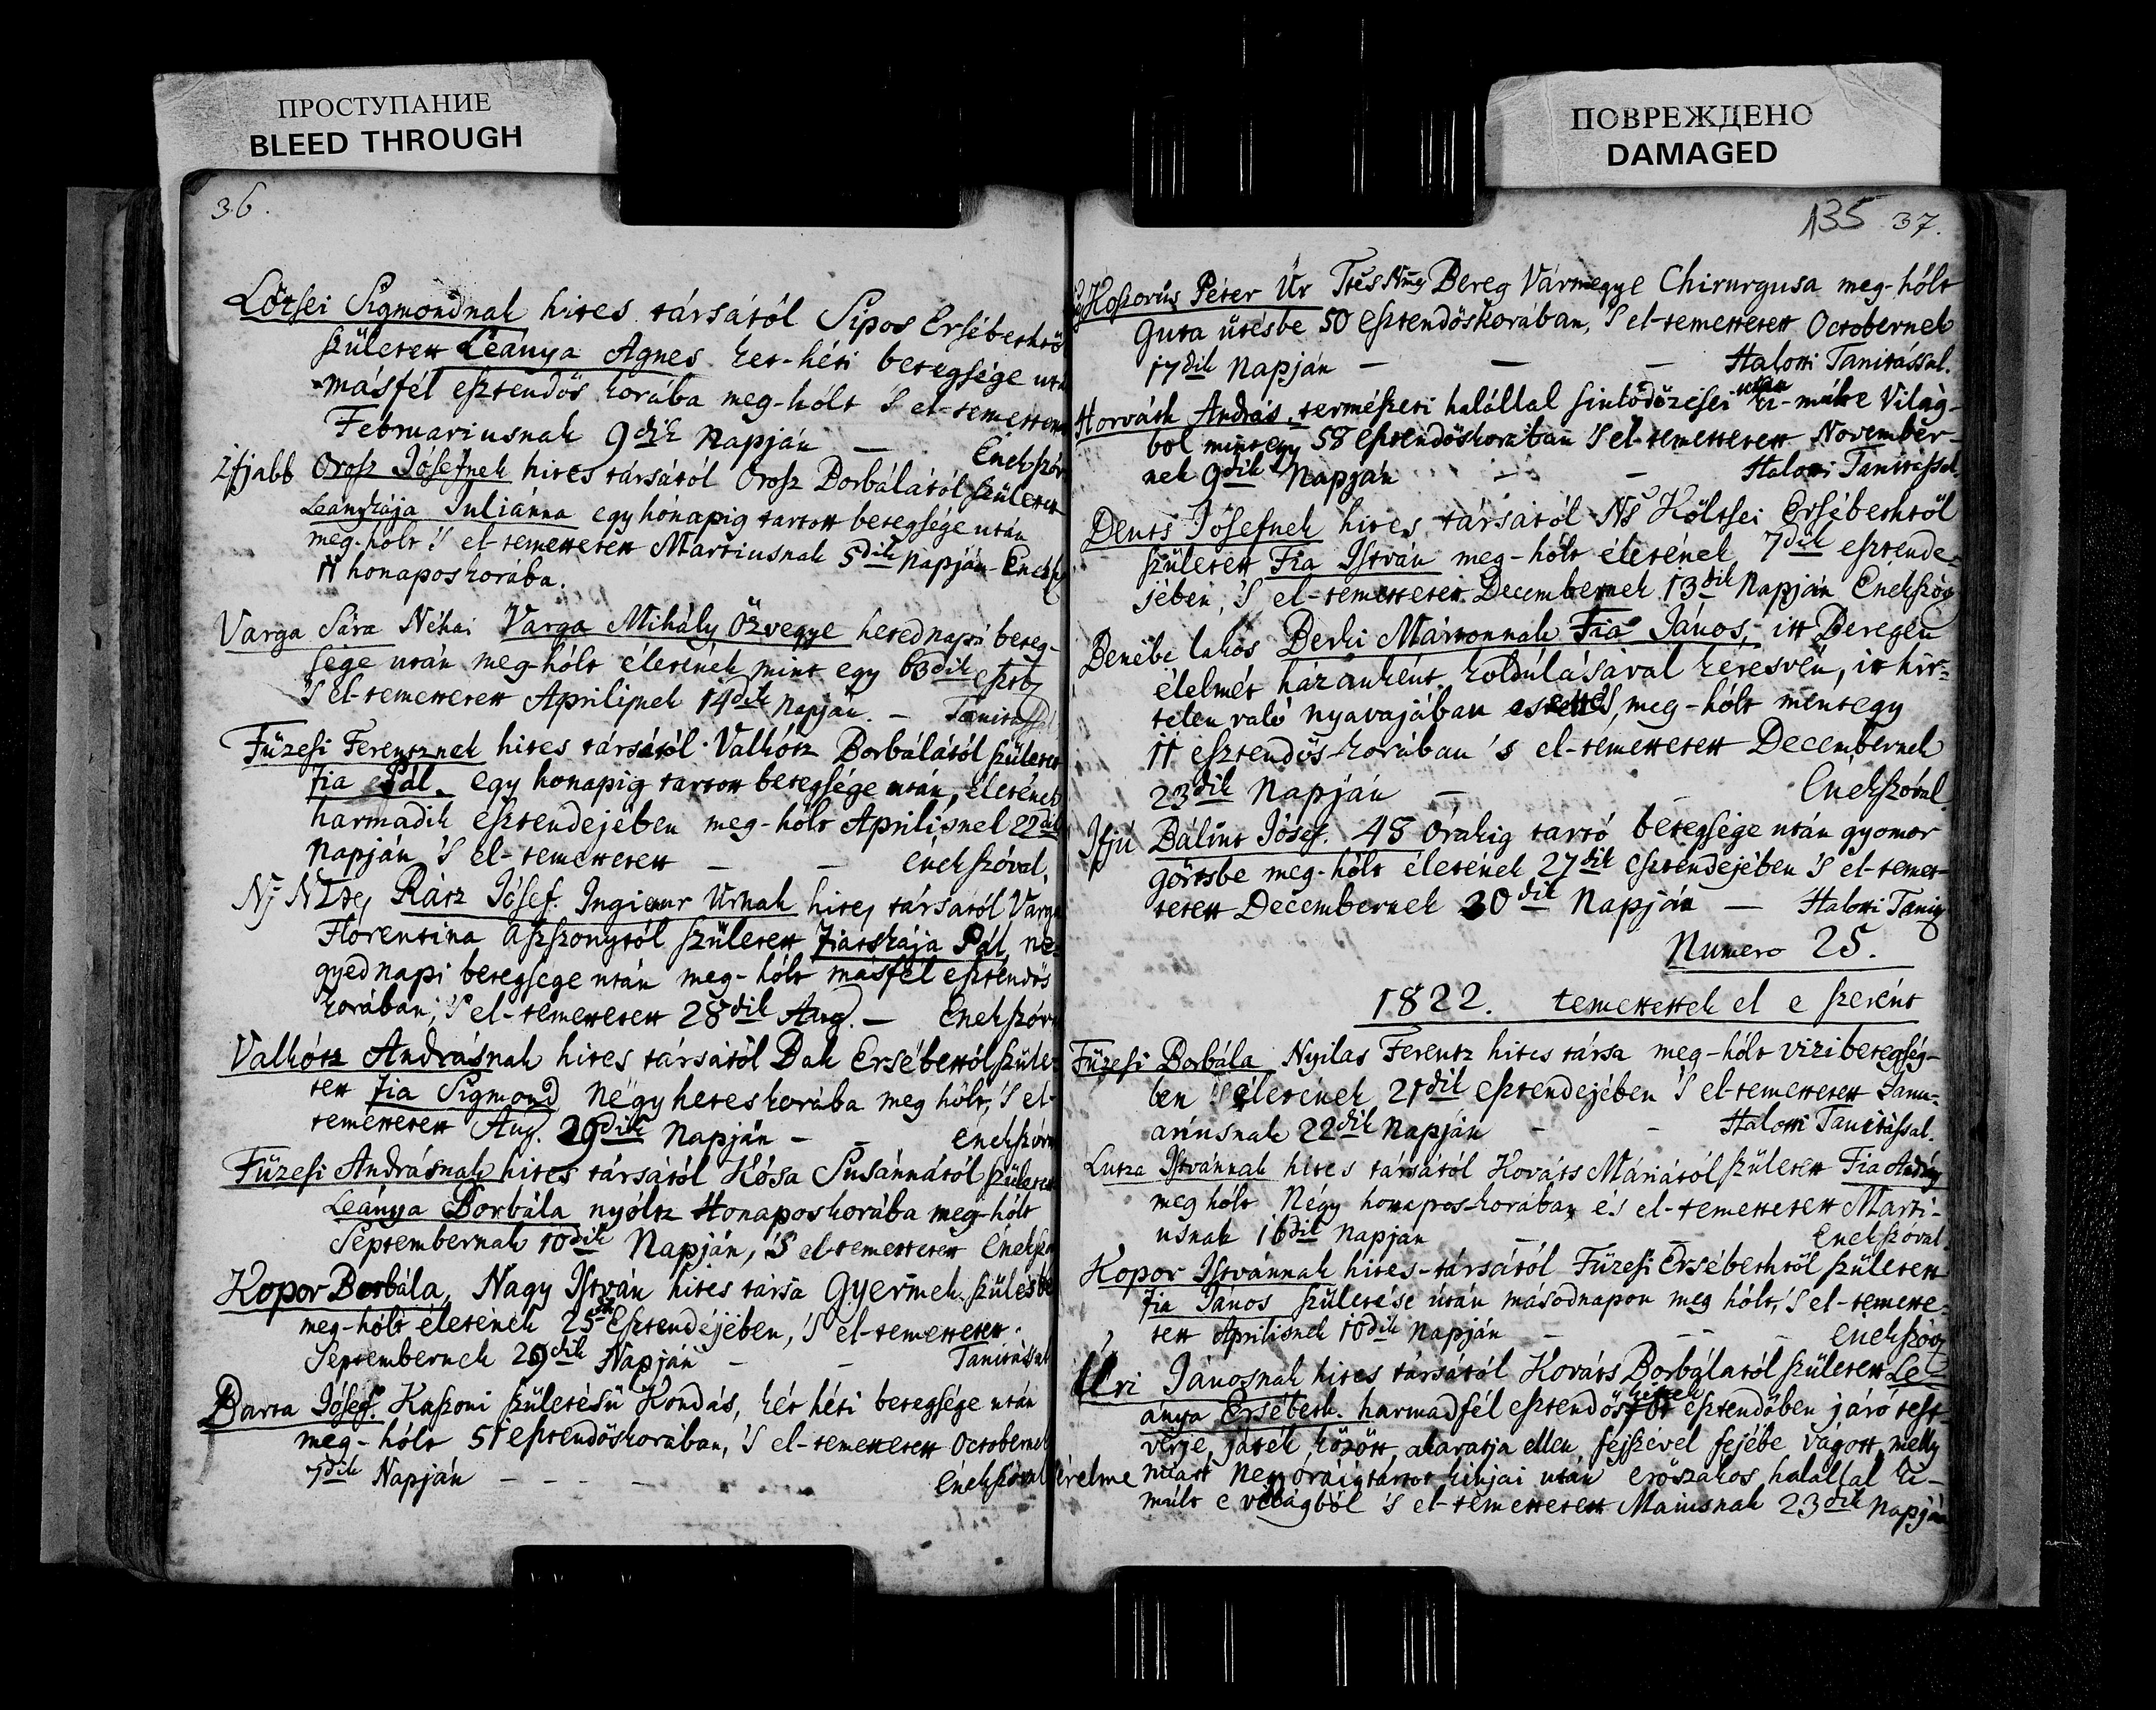 ПРОСТУПАНИЕ
BLEED THROUGH
36.
Lőtsei Sigmondnak hites társától Sipos Ersébethtöl
született Leánya Agnes két-héti betegsége után
másfél esztendös korába meg-hólt 's el-temettetett
Februariusnak 9dik Napján — Énekszóv
Ifjabb Orosz Jósefnek hites társától Orosz Borbálától született
Leánykája Juliánna egy hónapig tartott betegsége után
meg-holt 's el-temettetett Martiusnak 5dik Napján - Éneksz
11 honaposkorába.
Varga Sára Néhai Varga Mihály Özvegye hetednapi beteg-
sége után meg-hólt életének mint egy 63dik eszt
's el-temettetett Aprilisnek 14dik Napján. — Tanitással
Füzesi Ferentznek hites társától Valkótz Borbálától született
fia Pál. egy honapig tartott betegsége után, életének
harmadik esztendejében meg-hólt Aprilisnek 22dik
Napján 's el-temettetett — — énekszóval.
Rátz Jósef. Ingieur Urnak hites társától Varga
Florentina Aszszonytól született fiatskája Pál, ne-
gyednapi betegsege után meg-hólt másfél esztendös
korában, 's el-temettetett 28dik Aug. — Énekszóv
Valkótz Andrásnak hites társától Dak Ersébettöl szüle-
tett fia Sigmond Négyheteskorába meg hólt, 's el-
temettetett Aug. 29dik Napján — — énekszóv
Füzesi Andrásnak hites társától Kósa Susánnától született
Leánya Borbála nyóltz Honaposkorába meg-hólt
Septembernek 10dik Napján, 's el-temettetett Énekszó
Kopor Borbála, Nagy István hites társa Gyermek-szülésbe
meg-hólt életének 25dik Esztendejében, 's el-temettetett
Septembernek 29dik Napján — — Tanitással
Barta Jósef. Kaszoni születésü Kondás, két héti betegsége után
meg-hólt 51 esztendöskorában, 's el-temettetett Octobernek
7dik Napján — — — — énekszóval
ПОВРЕЖДЕНО
DAMAGED
135 37.
Koszorús Péter Úr Bereg Vármegye Chirurgusa meg-hólt
Guta ütésbe 50 esztendöskorában, 's el-temettetett Octobernek
17dik Napján — — — Halotti Tanitással.
Horváth András. természeti halállal sinlödözései után ki-múlt e Világ-
bol mint egy 58 esztendöskorában 's el-temettetett November-
nek 9dik Napján — — Halotti Tanitással.
Dents Jósefnek hites társától Ns Költsei Ersébethtöl
született Fia István meg-hólt életének 7dik esztende-
jében, 's el-temettetett Decembernek 13dik Napján Énekszóv
Benébe lakós Berki Mártonnak Fia János, itt Beregen
élelmét házanként koldúlásával keresvén, itt hir-
telen való nyavajában esett 's, meg-hólt mintegy
11 esztendös-korában 's el-temettetett Decembernek
23dik Napján — — énekszóval.
Ifjú Bálint Jósef. 48 órákig tartó betegsége után gyomor
görtsbe meg-hólt életének 27dik esztendejében 's el-temet-
tetett Decembernek 30dik Napján — Halotti Tanit
Numero 25.
1822. temettettek el e szerént
Füzesi Borbála Nyilas Ferentz hites társa meg-hólt vizibetegség-
ben 's életének 21dik esztendejében 's el-temettetett Janu-
ariusnak 22dik Napján — — Halotti Tanitással.
Lutza Istvánnak hites társától Kováts Máriától született Fia András
meg hólt Négy honapos-korában és el-temettetett Marti-
usnak 16dik Napján — — énekszóval.
Kopor Istvánnak hites-társától Füzesi Ersébethtöl született
fia János születése után masodnapon meg hólt, 's el-temette-
tett Aprilisnek 10dik Napján — — — énekszóv
Uri Jánosnak hites társától Kováts Borbálától született Le-
ánya Ersébeth. harmadfél esztendös, kit hat esztendöben járó test-
vérje, játék között, akaratja ellen fejszével fejébe vágott, melly
sérelme miatt Negy óráig tartot kinjai után erőszakos halállal ki-
múlt e világból 's el-temettetett Maiusnak 23dik Napján